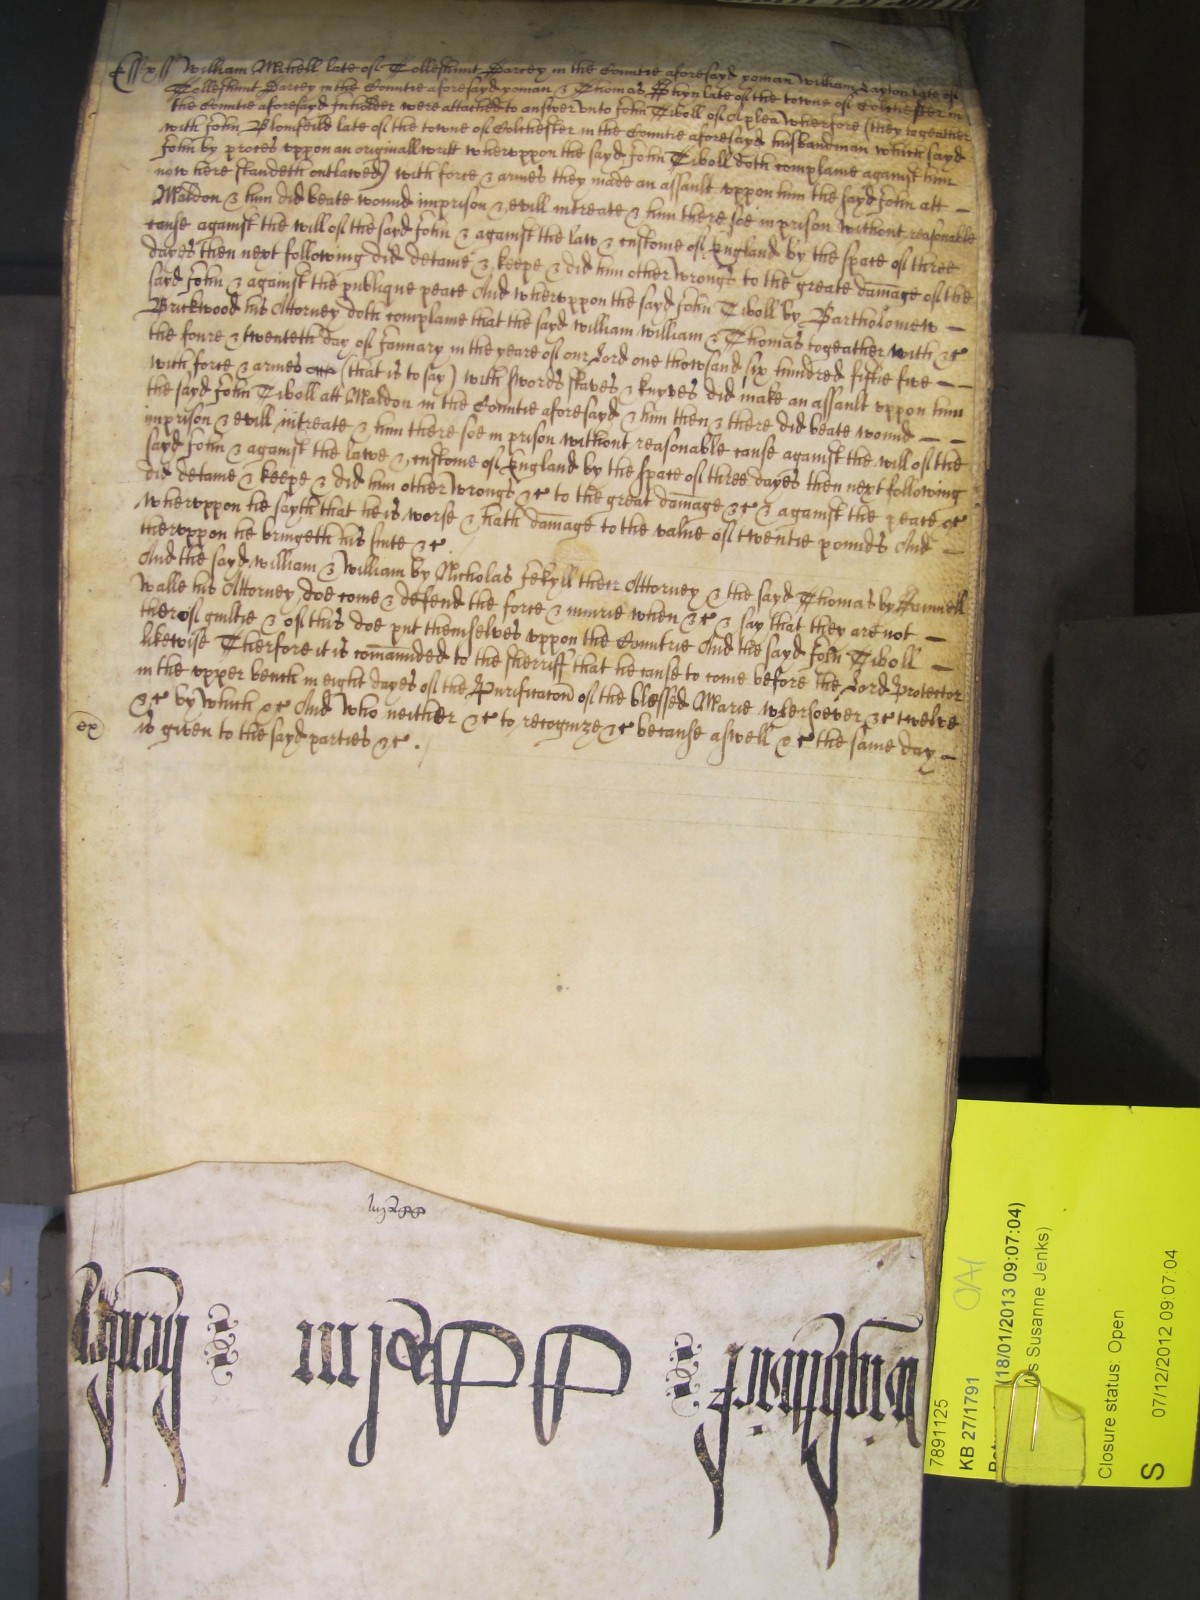 Essex ss William Mitchell late of Tolleshunt Darcey in the Countie aforesayd yoman William Layton late of
Tolleshunt Darcey in the Countie aforesayd yoman & Thomas late of the towne of Colchester in
the Countie aforesayd Inholder were attached to answer unto John Tiboll of A plea wherfore (they togeather
with John Blomfeild late of the towne of Colchester in the Countie aforesayd husbandman which sayd
John by proces uppon an originall writt wheruppon the sayd John Tiboll doth complaine against him
now here standeth outlawed) with force & armes they made an assault uppon him the sayd John att
Maldon & him did beate wound imprison & evill intreate & him there soe in prison without reasonable
cause against the will of the sayd John & against the law & custome of England by the space of three
dayes then next following did detaine & keepe & did him other wrongs to the greate damage of the
sayd John & against the publique peace And wheruppon the sayd John Tiboll by Bartholomew
Brickwood his Attorney doth complaine that the sayd William William & Thomas togeather with &c
the foure & twenteth day of January in the yeare of our Lord one thowsand six hundred fiftie five
with force & armes (that is to say) with swords staves & knyves did make an assault uppon him
the sayd John Tiboll att Maldon in the Countie aforesayd & him then & there did beate wound
imprison & evill intreate & him there soe in prison without reasonable cause against the will of the
sayd John & against the lawe & custome of England by the space of three dayes then next following
did detaine & keepe & did him other wrongs &c to the great damage &c & against the peace &c
wheruppon he sayth that he is worse & hath damage to the value of twentie pounds And
theruppon he bringeth his suite &c
And the sayd William & William by Nicholas Jekyll their Attorney & the sayd Thomas by Hamnell
Walle his Attorney doe come & defend the force & iniurie when &c & say that they are not
therof guiltie & of this doe put themselves uppon the Countrie And the sayd John Tiboll
likewise Therfore it is comaunded to the sherriff that he cause to come before the Lord Protector
in the upper bench in eight dayes of the Purificacon of the blessed Marie whersoever &c twelve
&c by which &c And who neither &c to recognize &c because aswell &c the same day
ex
is given to the sayd parties &c.
7891125
KB 27/1791
(18/01/2013 09:07:04)
s Susanne Jenks)
Closure status: Open
S
07/12/2012 09:07:04